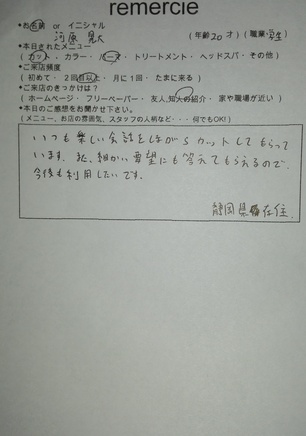 remercie
*お名前 or イニシャル
河原 晃大 (年齢20才)(職業学生)
*本日されたメニュー
(カット・カラー・パーマ・トリートメント・ヘッドスパ・その他)
*ご来店頻度
(初めて・2回目以上・月に1回・たまに来る)
*ご来店のきっかけは?
(ホームページ・フリーペーパー・友人,知人の紹介・家や職場が近い)
*本日のご感想をお聞かせ下さい。
(メニュー、お店の雰囲気、スタッフの人柄など・・・何でもOK!)
いつも楽しい会話をしながらカットしてもらって
います。私、細かい要望にも答えてもらえるので、
今後も利用したいです。
静岡県在住